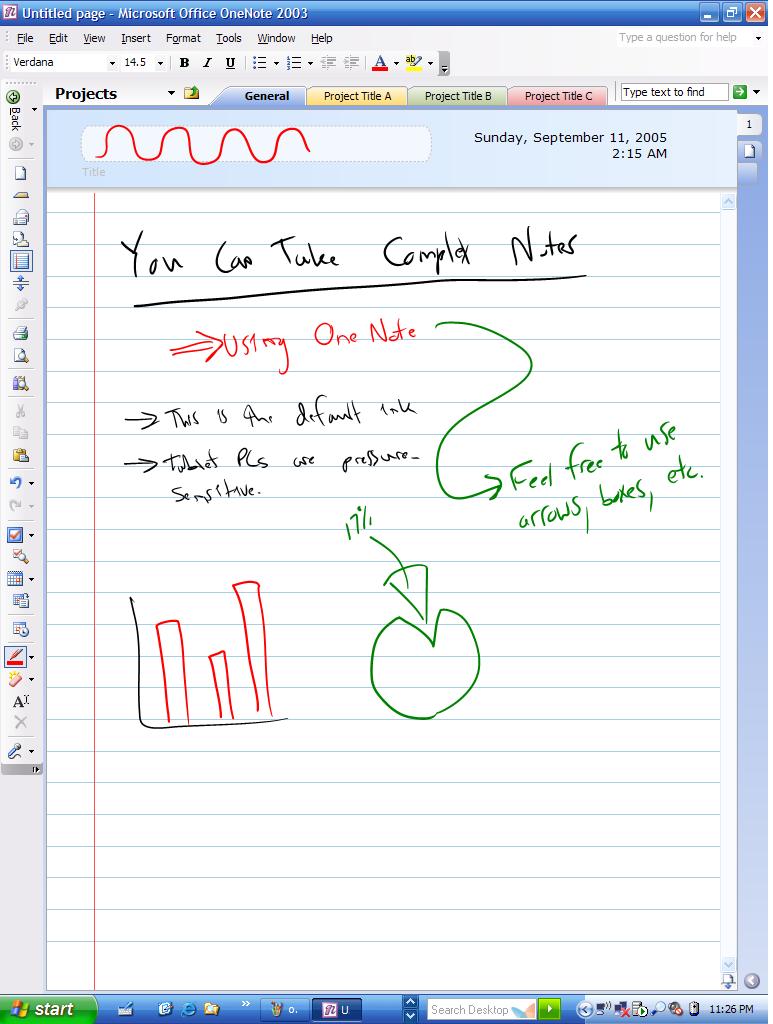 Untitled page - Microsoft Office OneNote 2003
File Edit View Insert Format Tools Window Help Type a question for help
Verdana 14.5 B I U A ab
Back
Projects General Project Title A Project Title B Project Title C Type text to find
1
Sunday, September 11, 2005
2:15 AM
Title
You Can Take Complex Notes
⇒ Using One Note
→ This is the default ink
→ Tablet PCs are pressure-
sensitive.
Feel free to use
arrows, boxes, etc.
17%
start o. U Search Desktop 11:26 PM